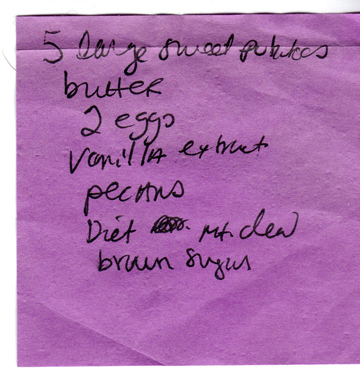 5 large sweet potatoes
butter
2 eggs
vanilla extract
pecans
Diet Mt. dew
brown sugar